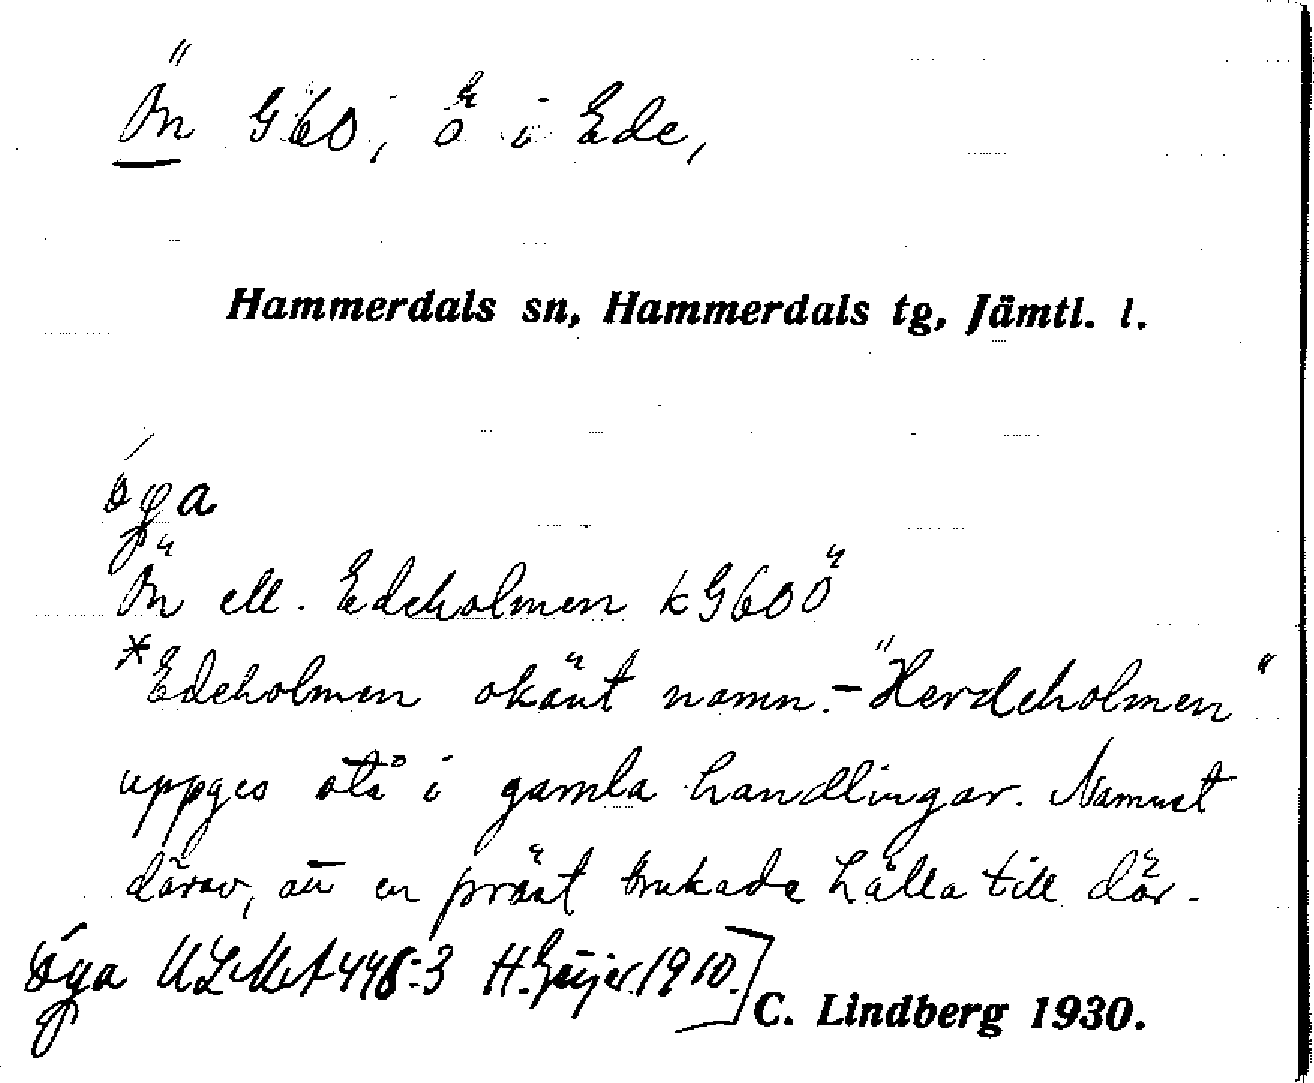 Ön G60, ö i Ede,
Hammerdals sn, Hammerdals tg, Jämtl. l.
Ön ell. Edeholmen kG60Ö
*Edeholmen okänt namn. - "Herdeholmen"
uppges stå i gamla handlingar. Namnet
därav, att en präst brukade hålla till där.
ULMA 448:3 H. Geijer. 1910.]
C. Lindberg 1930.